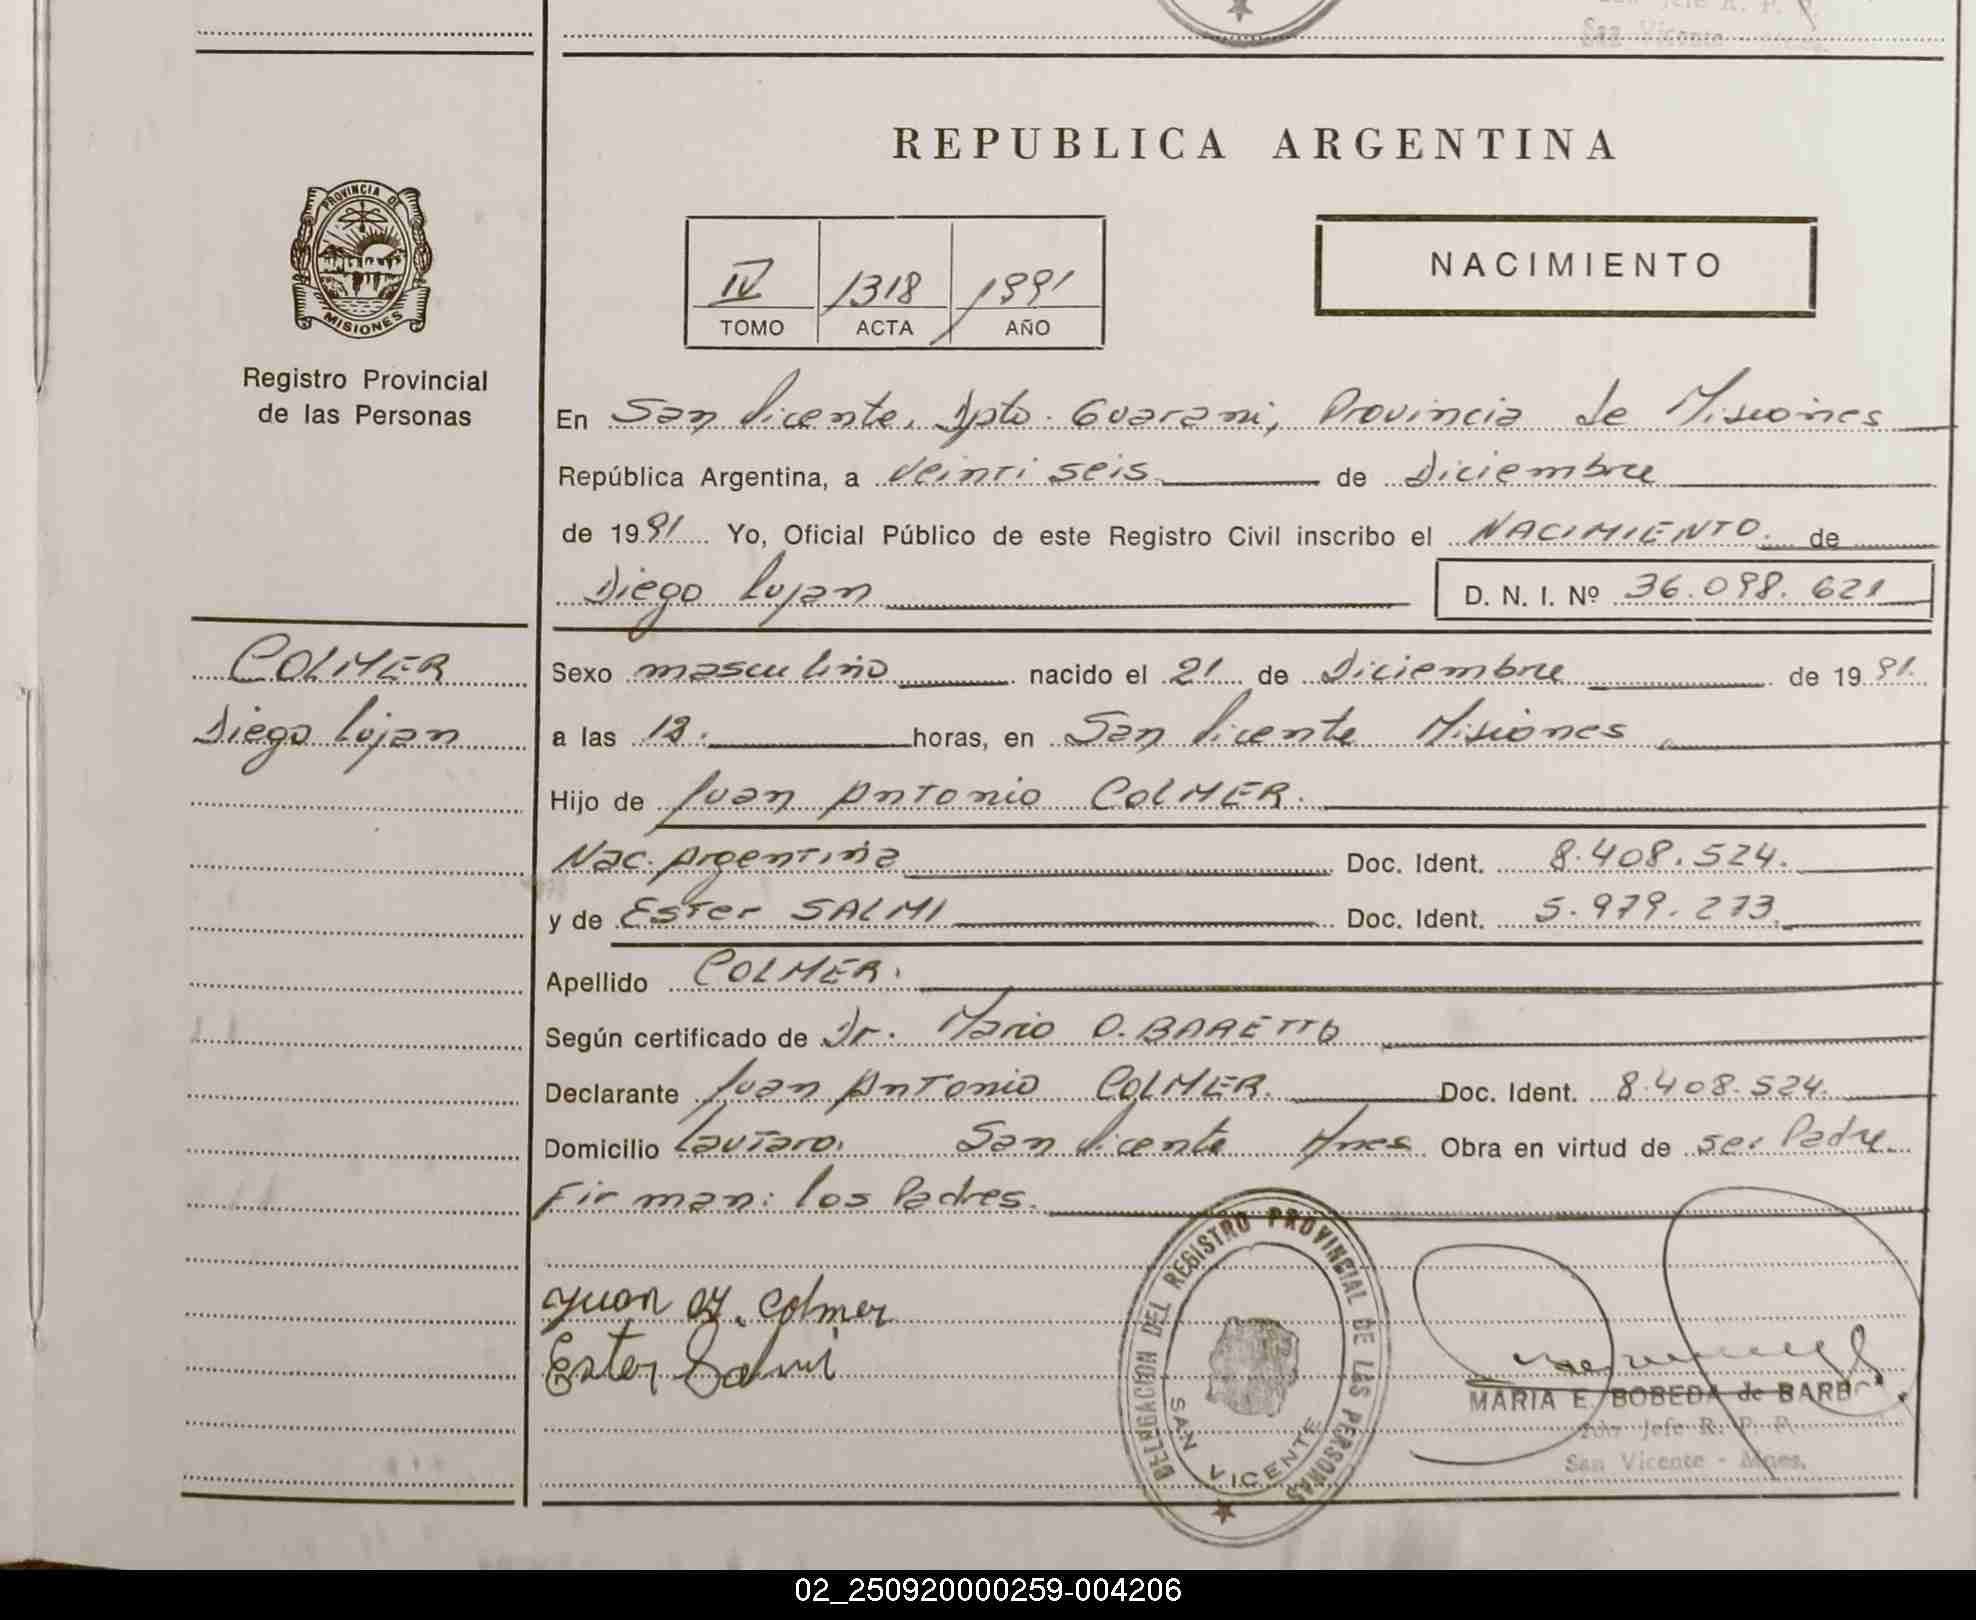 San Vicente
REPUBLICA ARGENTINA
PROVINCIA DE
MISIONES
Registro Provincial
de las Personas
NACIMIENTO
IV 1318 1991
TOMO ACTA AÑO
En San Vicente, Dpto. Guarani, Provincia de Misiones
República Argentina, a Veintiseis de Diciembre
de 1991 Yo, Oficial Público de este Registro Civil inscribo el NACIMIENTO de
Diego Lujan D. N. I. Nº 36.098.621
COLMER
Diego Lujan
Sexo masculino nacido el 21 de Diciembre de 1991.
a las horas, en San Vicente Misiones
Hijo de Juan Antonio COLMER.
Nac. Argentina Doc. Ident. 8.408.524.
y de Ester SALMI Doc. Ident. 5.979.273.
Apellido COLMER.
Según certificado de Dr. Mario O. BARETTO
Declarante Juan Antonio COLMER. Doc. Ident. 8.408.524.
Domicilio Lautaro. San Vicente Mnes Obra en virtud de ser Padre.
Firman: los Padres.
Juan A. Colmer
Ester Salmi
DELEGACION DEL REGISTRO PROVINCIAL DE LAS PERSONAS
SAN VICENTE
MARIA E. BOBEDA de
Jefe R. P. P.
San Vicente - Mnes.
02_250920000259-004206